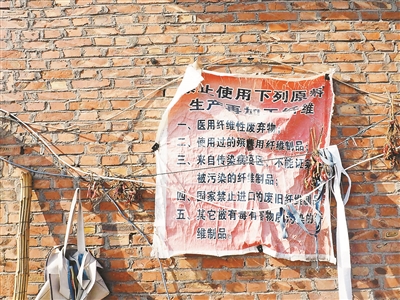 禁止使用下列原料
生产再加工纤维
一、医用纤维性废弃物
二、使用过的殡葬用纤维制品
三、来自传染病疫区不能证
被污染的纤维制品
四、国家禁止进口的废旧纤维制
五、其它被有毒有害物质污染的
维制品